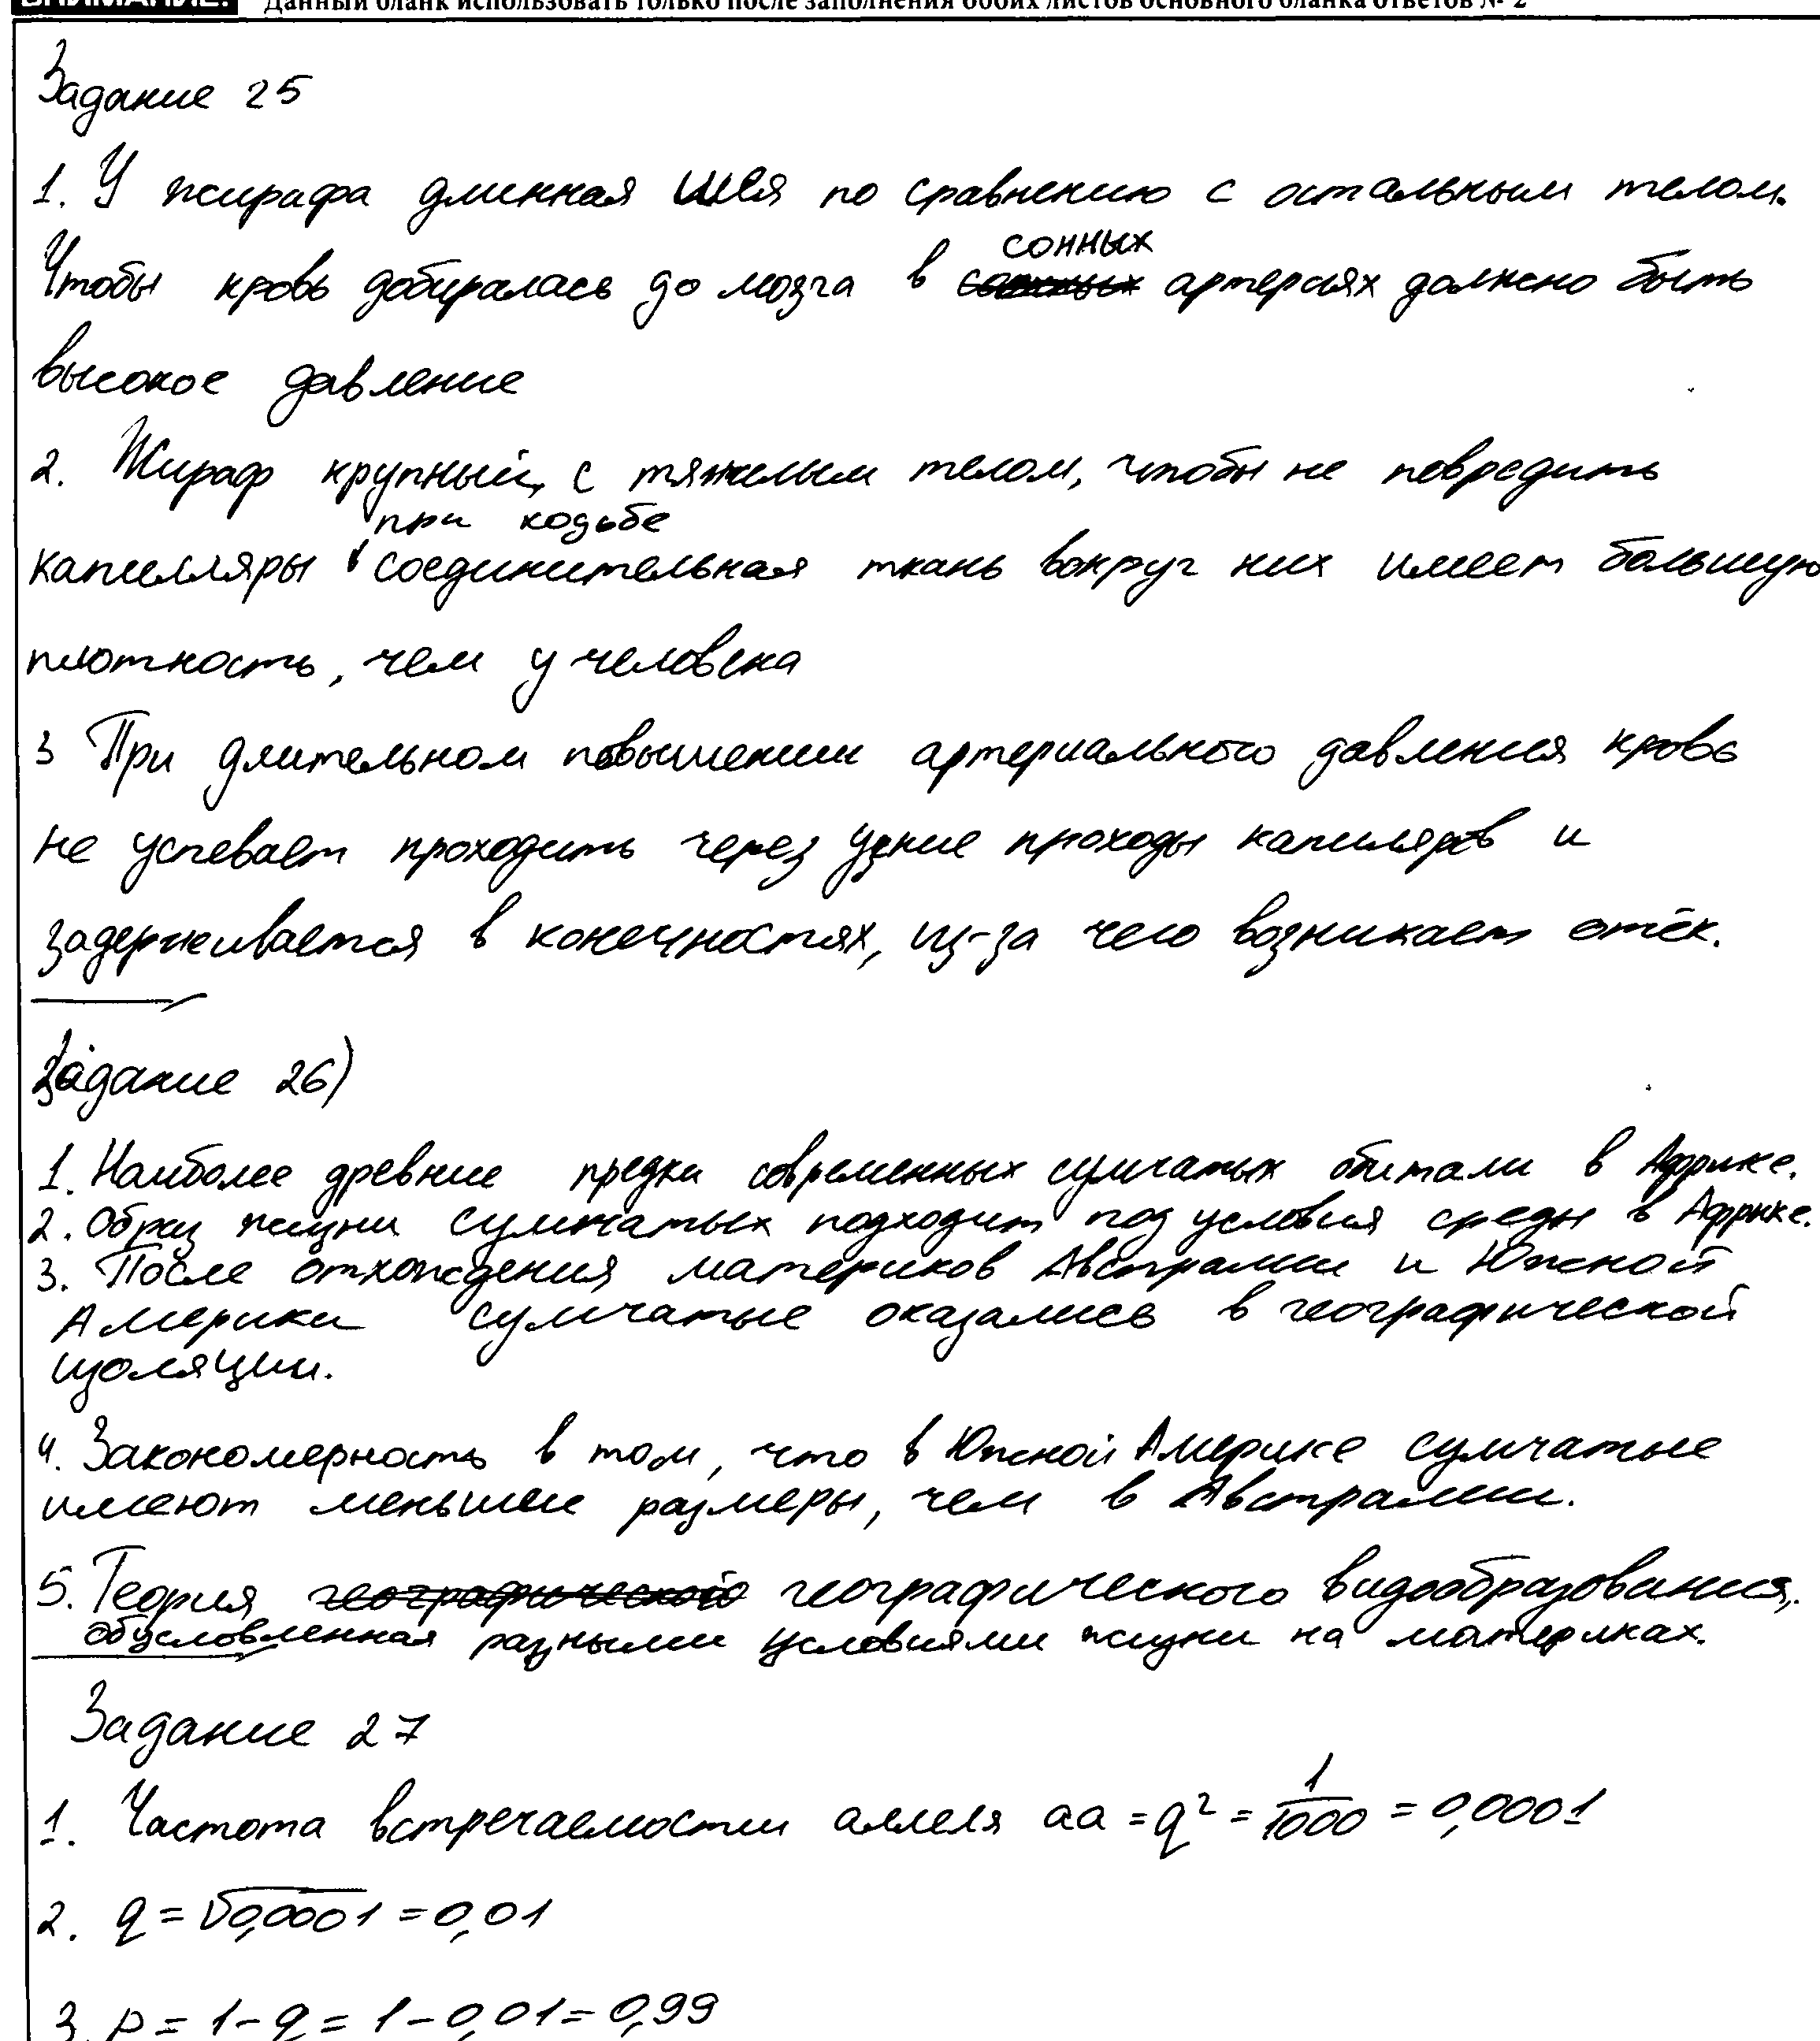 Данный бланк использовать только после заполнения обоих листов основного бланка ответов № 2
Задание 25
1. У жирафа длинная шея по сравнению с остальным телом.
Чтобы кровь добиралась до мозга в сонных артериях должно быть
высокое давление
2. Жираф крупный, с тяжелым телом, чтобы не повредить
капилляры при ходьбе соединительная ткань вокруг них имеет большую
плотность, чем у человека
3 При длительном повышении артериального давления кровь
не успевает проходить через узкие проходы капиляров и
задерживается в конечностях, из-за чего возникает отёк.
Задание 26)
1. Наиболее древние предки современных сумчатых обитали в Африке.
2. Образ жизни сумчатых подходит под условия среды в Африке.
3. После отхождения материков Австралии и Южной
Америки сумчатые оказались в географической
изоляции.
4. Закономерность в том, что в Южной Америке сумчатые
имеют меньшие размеры, чем в Австралии.
5. Теория географического видообразования,
обусловленная разными условиями жизни на материках.
Задание 27
1. Частота встречаемости аллеля aa = q² = 1/1000 = 0,0001
2. q = √0,0001 = 0,01
3. p = 1 - q = 1 - 0,01 = 0,99